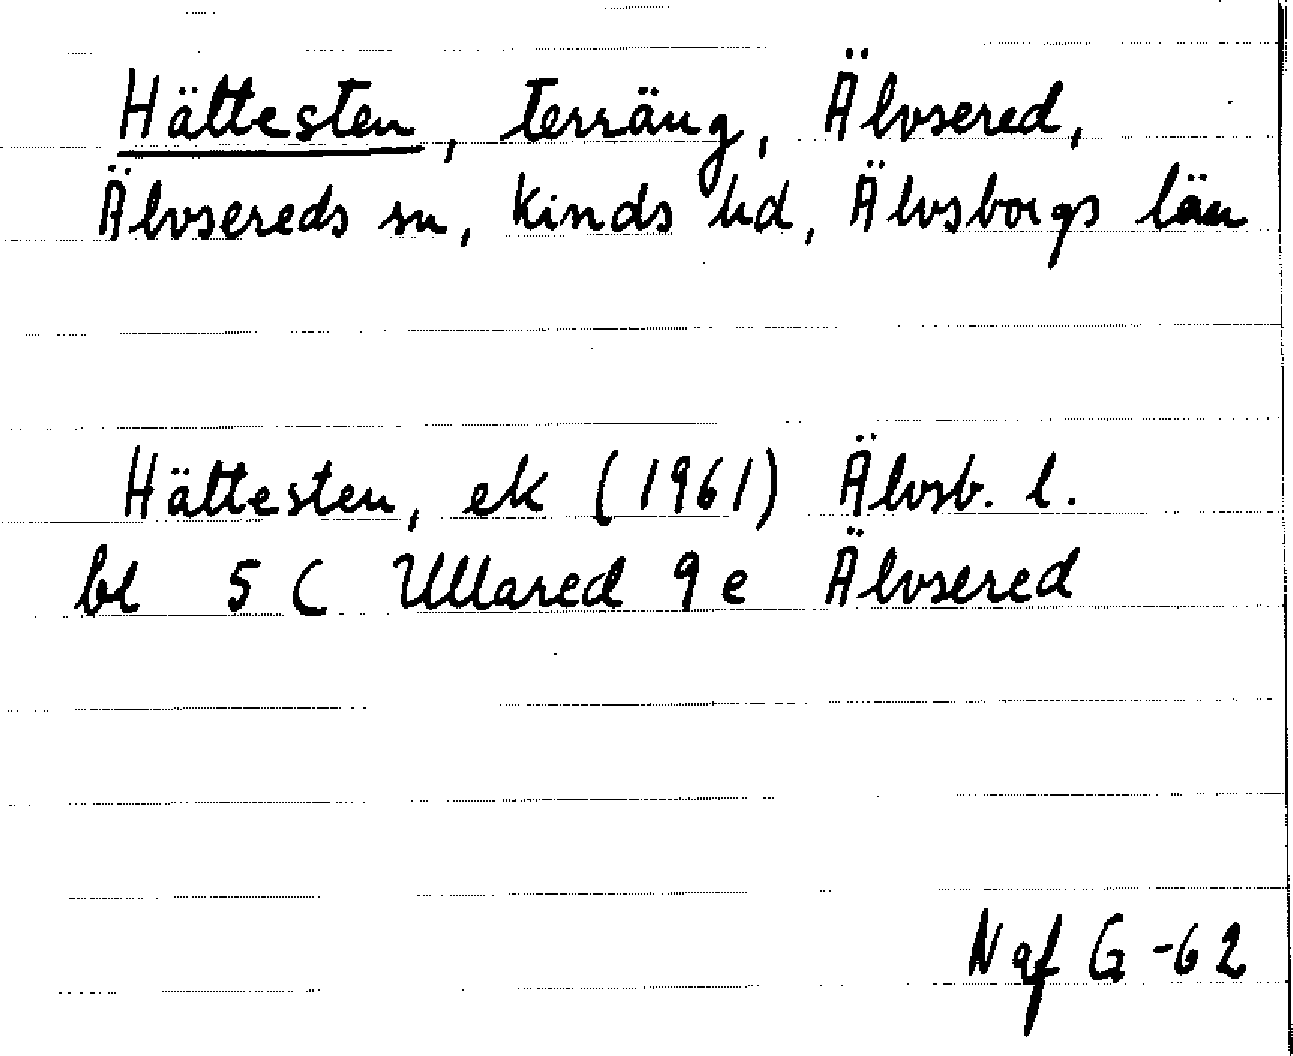 Hättesten, terräng, Älvsered,
Älvsereds sn, Kinds hd, Älvsborgs län
Hättesten, ek (1961) Älvsb. l.
bl 5 C Ullared 9 e Älvsered
Naf G -62